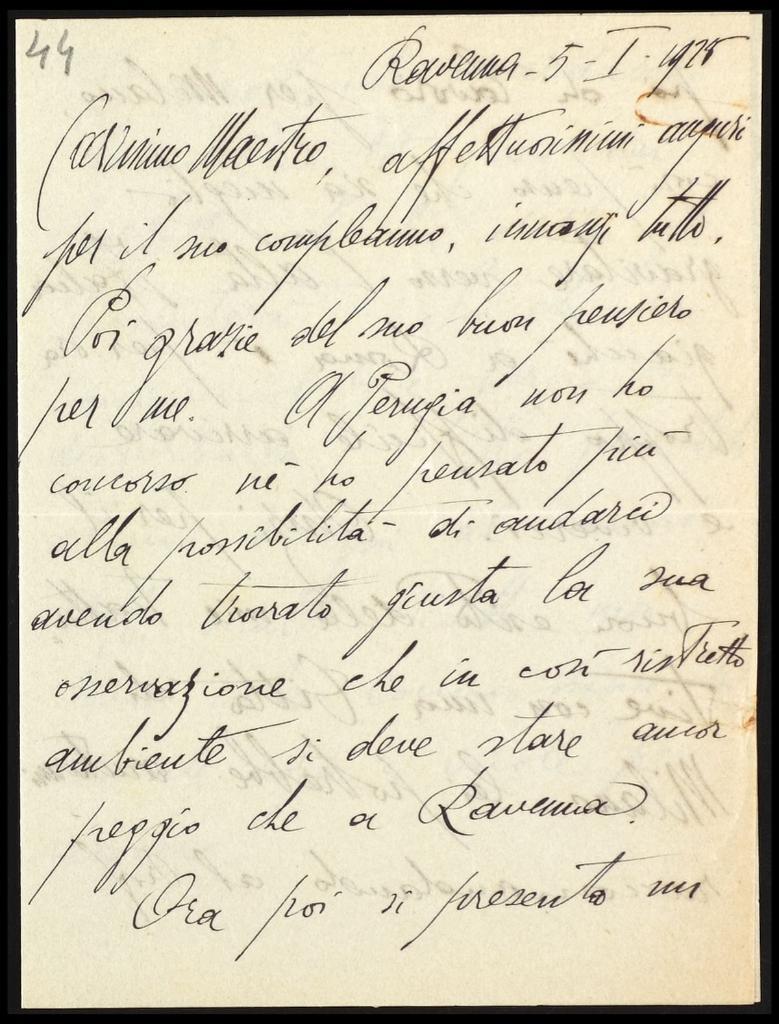 44
Ravenna - 5 - I - 1928
Carissimo Maestro, affettuosissimi auguri
per il suo compleanno, innanzi tutto.
Poi grazie del suo buon pensiero
per me. A Perugia non ho
concorso nè ho pensato più
alla possibilità di andarci
avendo trovato giusta la sua
osservazione che in così ristretto
ambiente si deve stare ancor
peggio che a Ravenna.
Ora poi si presenta un